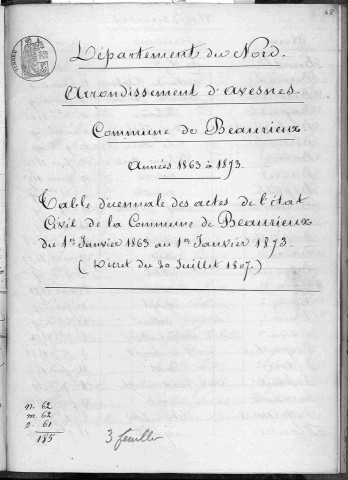 48
Département du Nord.
Arrondissement d'Avesnes.
Commune de Beaurieux
Années 1863 à 1873.
Table décennale des actes de l'état
Civil de la Commune de Beaurieux
du 1er Janvier 1863 au 1er Janvier 1873.
(Décret du 20 Juillet 1807.)
n. 62
m. 62
d. 61
185
3 feuilles